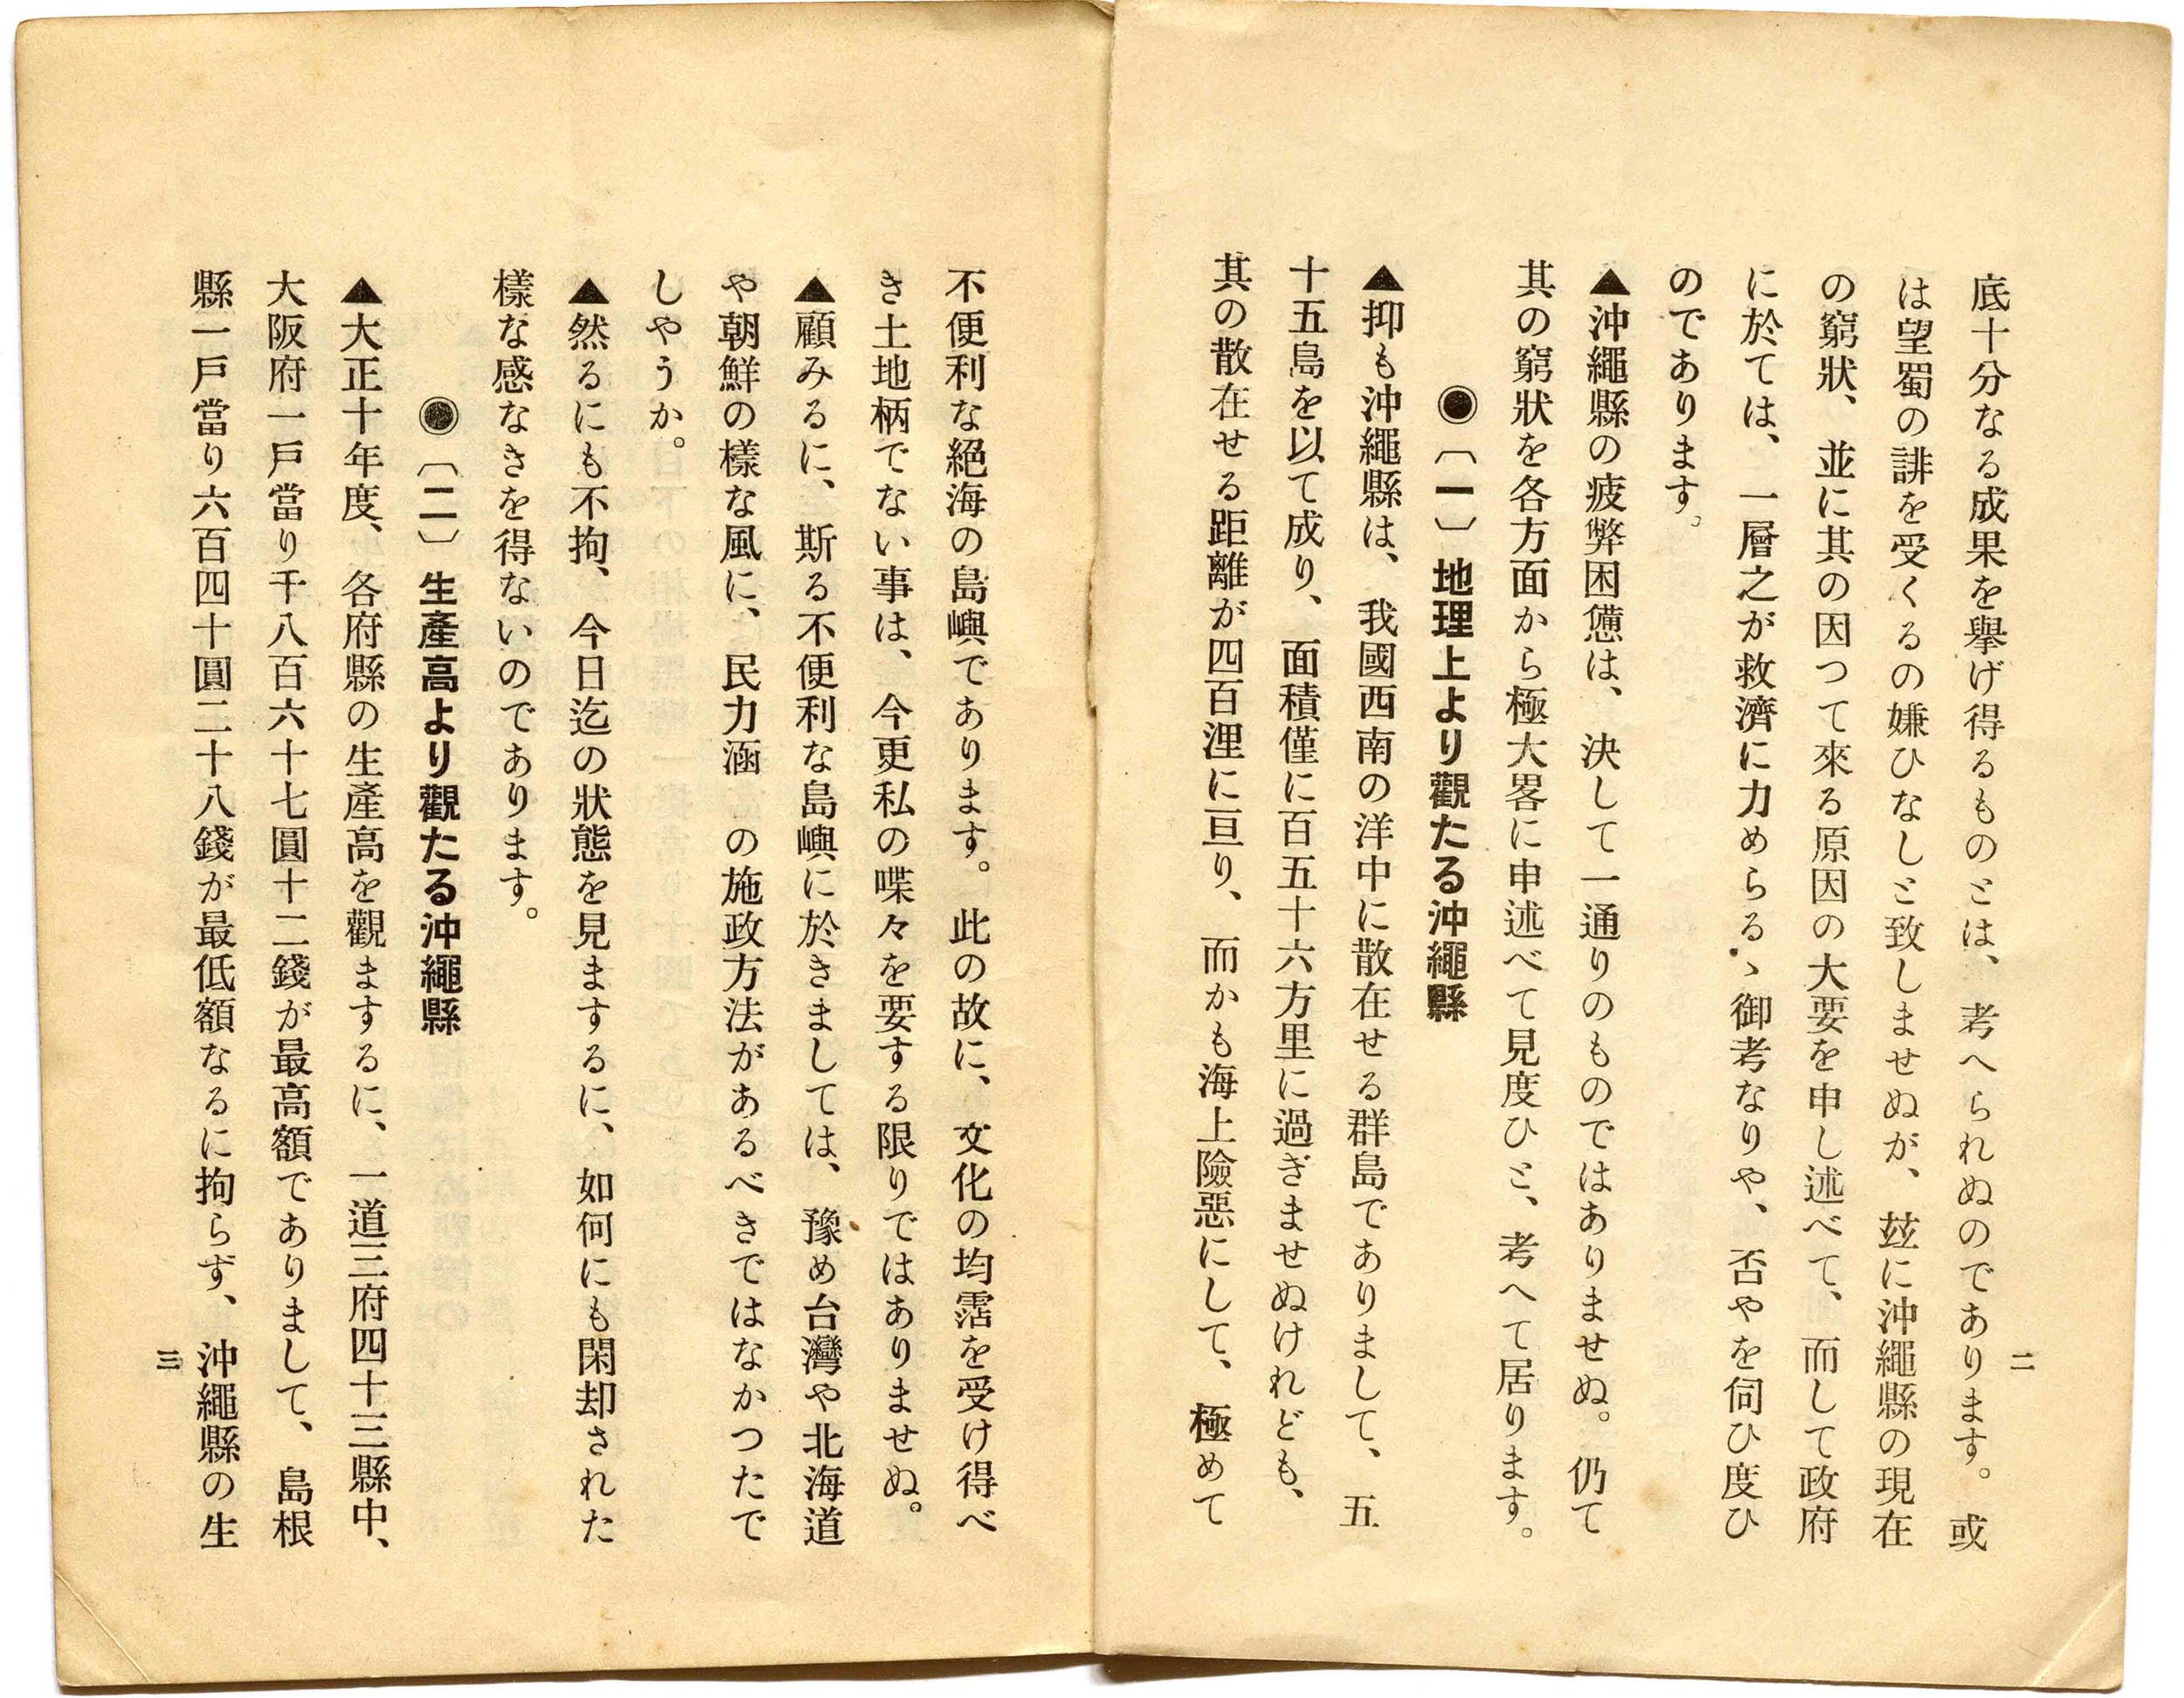 二
底十分なる成果を擧げ得るものとは、考へられぬのであります。或
は望蜀の誹を受くるの嫌ひなしと致しませぬが、玆に沖繩縣の現在
の窮狀、並に其の因つて來る原因の大要を申し述べて、而して政府
に於ては、一層之が救濟に力めらるゝ御考なりや、否やを伺ひ度ひ
のであります。
▲沖繩縣の疲弊困憊は、決して一通りのものではありませぬ。仍て
其の窮狀を各方面から極大畧に申述べて見度ひと、考へて居ります。
◉〔一〕地理上より觀たる沖繩縣
▲抑も沖繩縣は、我國西南の洋中に散在せる群島でありまして、五
十五島を以て成り、面積僅に百五十六方里に過ぎませぬけれども、
其の散在せる距離が四百浬に亘り、而かも海上險惡にして、極めて
不便利な絕海の島嶼であります。此の故に、文化の均霑を受け得べ
き土地柄でない事は、今更私の喋々を要する限りではありませぬ。
▲顧みるに、斯る不便利な島嶼に於きましては、豫め台灣や北海道
や朝鮮の樣な風に、民力涵 の施政方法があるべきではなかつたで
しやうか。
▲然るにも不拘、今日迄の狀態を見まするに、如何にも閑却された
樣な感なきを得ないのであります。
◉〔二〕生產高より觀たる沖繩縣
▲大正十年度、各府縣の生產高を觀まするに、一道三府四十三縣中、
大阪府一戶當り千八百六十七圓十二錢が最高額でありまして、島根
縣一戶當り六百四十圓二十八錢が最低額なるに拘らず、沖繩縣の生
三